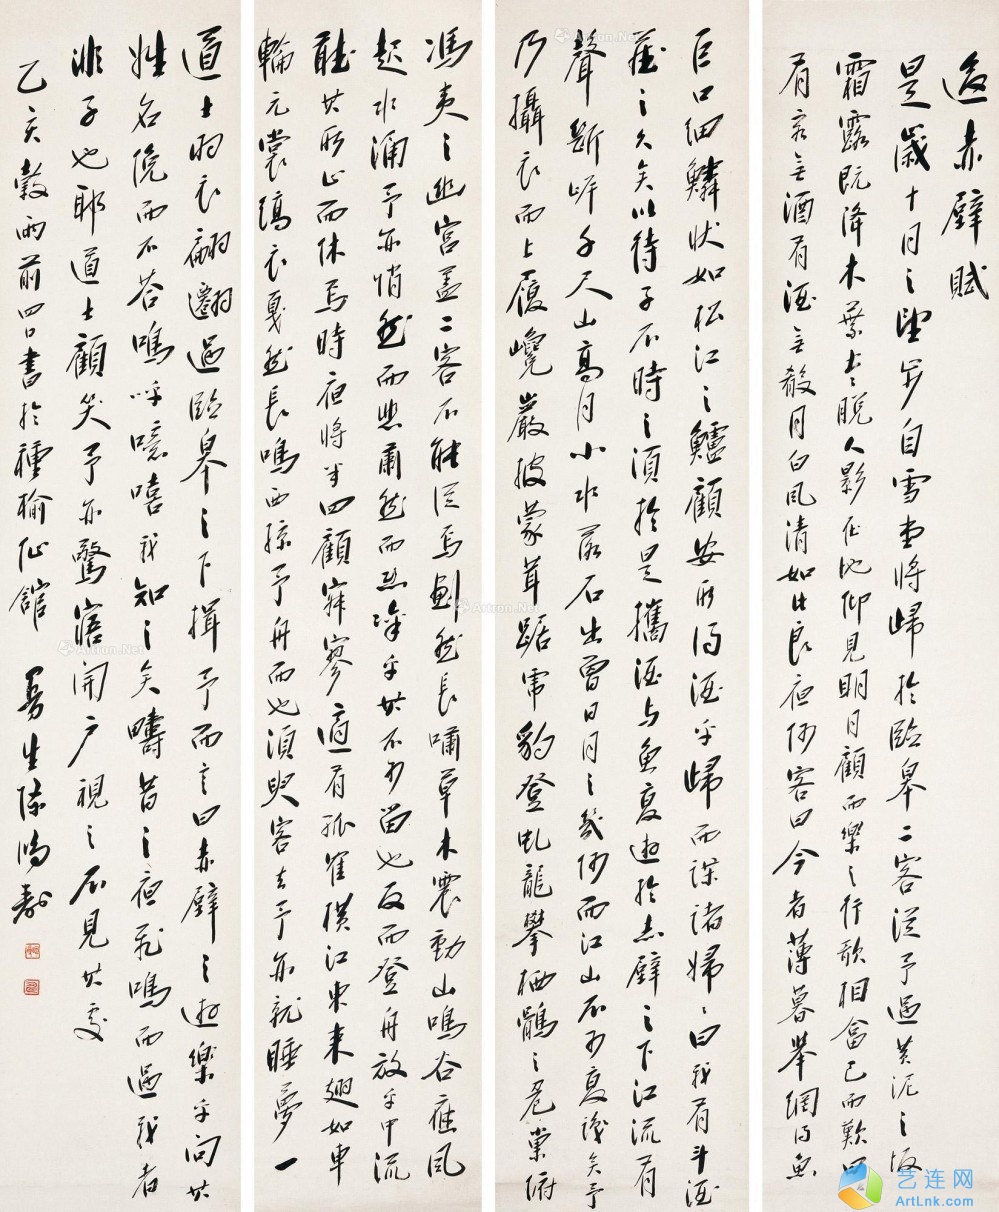 後赤壁賦
是歲十月之望步自雪堂將歸於臨皋二客從予過黃泥之坂
霜露既降木葉盡脫人影在地仰見明月顧而樂之行歌相答已而歎曰
有客無酒有酒無殽月白風清如此良夜何客曰今者薄暮舉網得魚
巨口細鱗狀如松江之鱸顧安所得酒乎歸而謀諸婦婦曰我有斗酒
藏之久矣以待子不時之須於是攜酒與魚復遊於赤壁之下江流有
聲斷岸千尺山高月小水落石出曾日月之幾何而江山不可復識矣予
乃攝衣而上履巉巖披蒙茸踞虎豹登虬龍攀栖鶻之危巢俯
馮夷之幽宮蓋二客不能從焉劃然長嘯草木震動山鳴谷應風
起水涌予亦悄然而悲肅然而恐凜乎其不可留也反而登舟放乎中流
聽其所止而休焉時夜將半四顧寂寥適有孤隺橫江東來翅如車
輪元裳縞衣戛然長鳴西掠予舟而也須臾客去予亦就睡夢一
道士羽衣翩躚過臨皋之下揖予而言曰赤壁之遊樂乎問其
姓名俛而不答嗚呼噫嘻我知之矣疇昔之夜飛鳴而過我者
非子也耶道士顧笑予亦驚寤開戶視之不見其處
乙亥穀雨前四日書於種榆仙館 曼生陳鴻壽
艺连网
ArtLnk.com